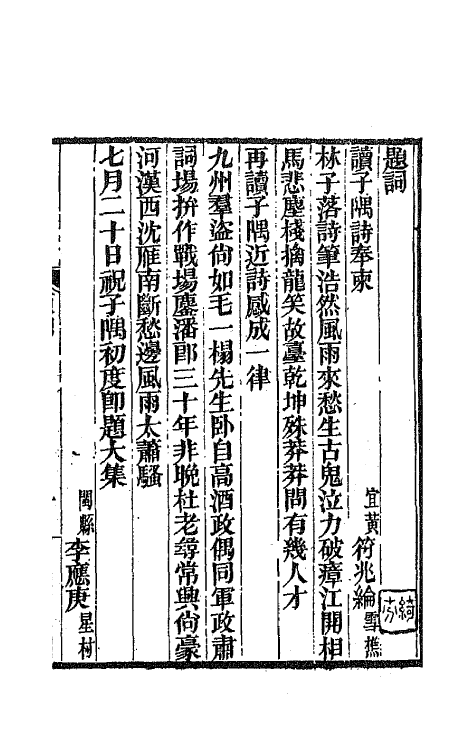 題詞
讀子隅詩奉柬
宜黃 符兆綸 雪樵
林子落詩筆浩然風雨來愁生古鬼泣力破瘴江開相
馬悲塵棧摛龍笑故臺乾坤殊莽莽問有幾人才
再讀子隅近詩感成一律
九州羣盜尙如毛一榻先生卧自高酒政偶同軍政肅
詞場拚作戰場鏖潘郎三十年非晚杜老尋常興尙豪
河漢西沈雁南斷愁邊風雨太蕭騷
七月二十日祝子隅初度卽題大集
閩縣 李應庚 星村